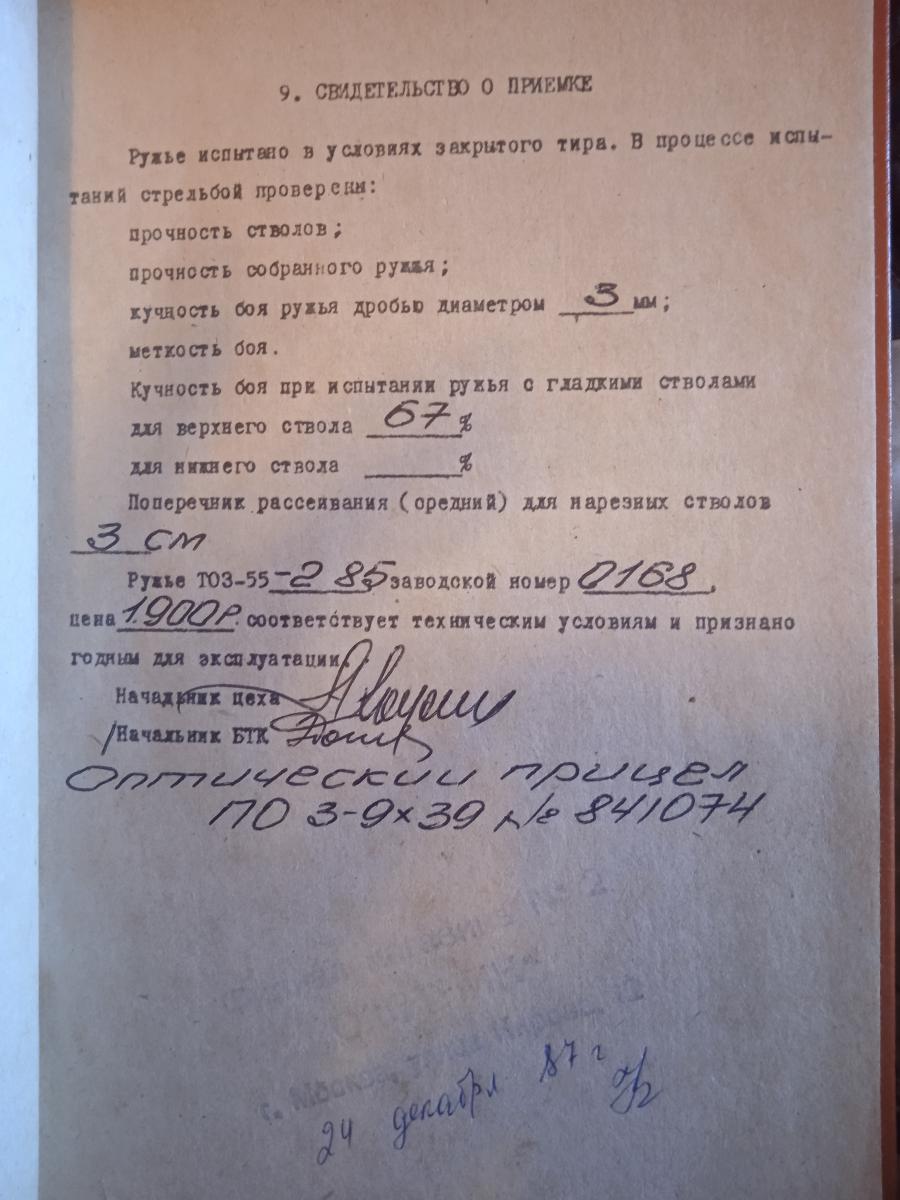 9. СВИДЕТЕЛЬСТВО О ПРИЕМКЕ
Ружье испытано в условиях закрытого тира. В процессе испы-
таний стрельбой проверены:
прочность стволов;
прочность собранного ружья;
кучность боя ружья дробью диаметром 3 мм;
меткость боя.
Кучность боя при испытании ружья с гладкими стволами
для верхнего ствола 67 %
для нижнего ствола ____ %
Поперечник рассеивания (средний) для нарезных стволов
3 см
Ружье ТОЗ-55-2 85 заводской номер 0168,
цена 1.900р. соответствует техническим условиям и признано
годным для эксплуатации.
Начальник цеха
Начальник БТК
Оптический прицел
ПО 3-9х39 № 841074
г. Москва
24 декабря 87 г